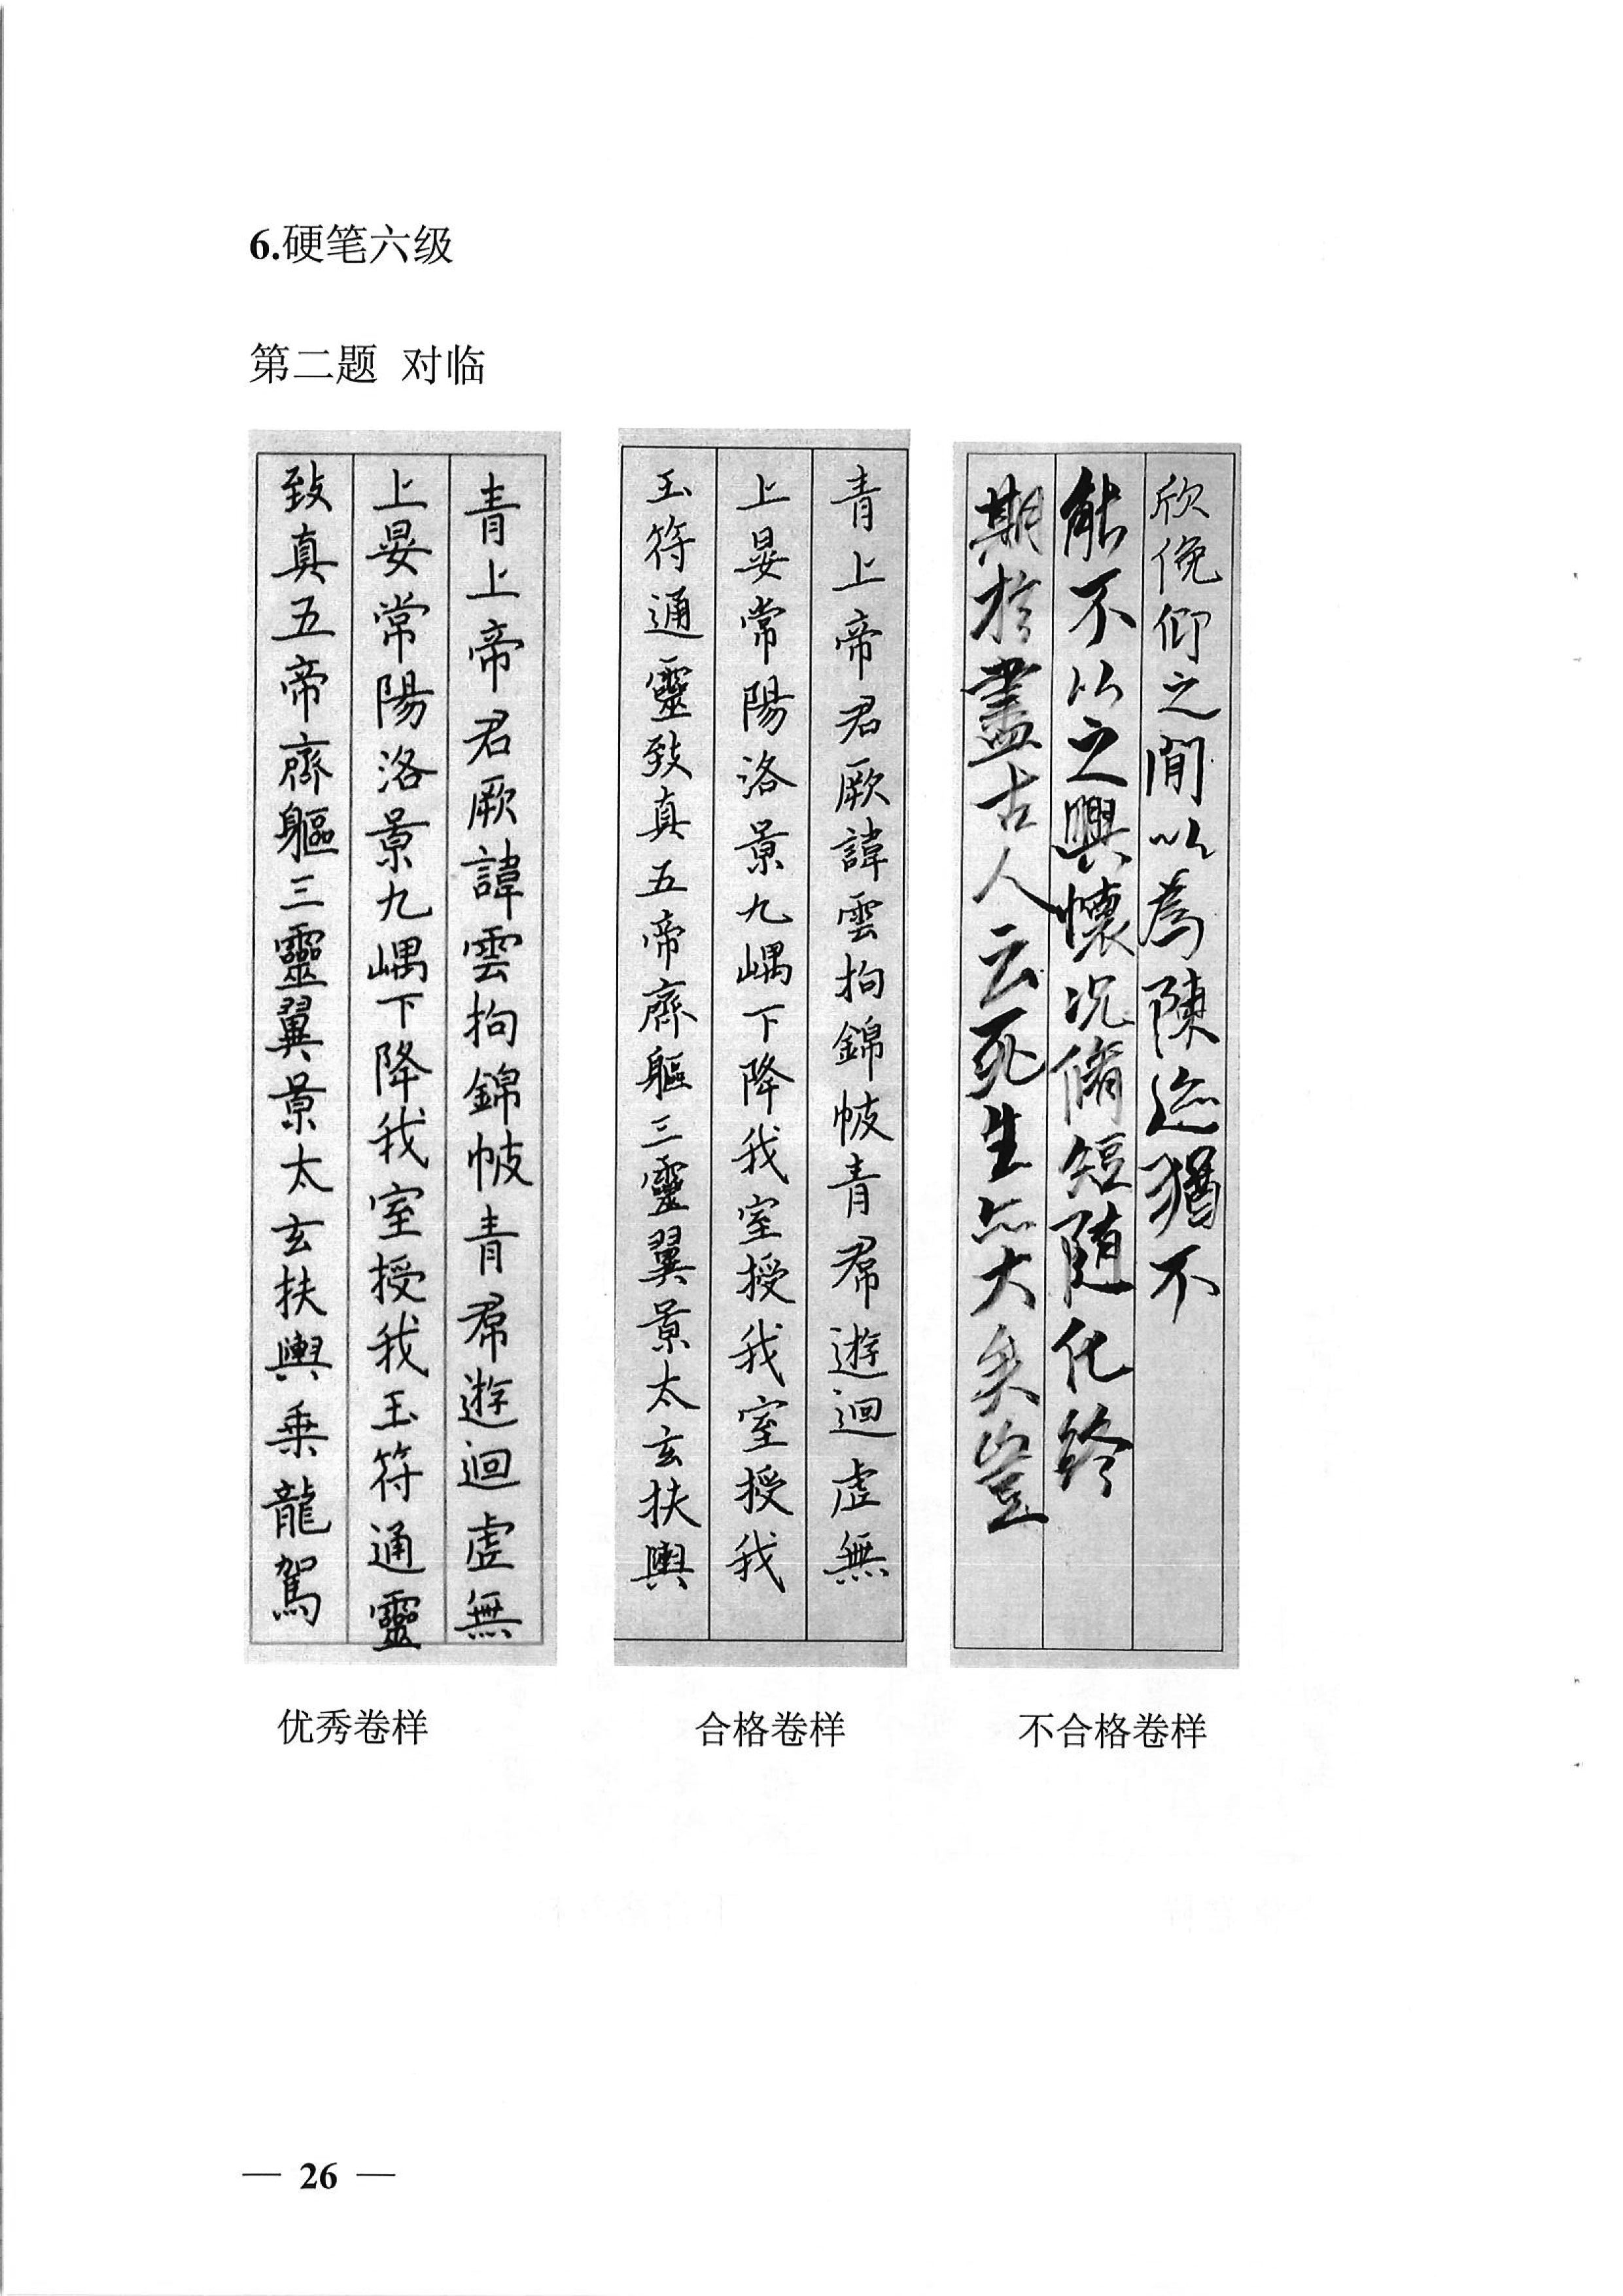 6.硬笔六级
第二题 对临
青上帝君厥諱雲拘錦帔青帬遊迴虚無
上晏常陽洛景九嵎下降我室授我玉符通靈
致真五帝齊軀三靈翼景太玄扶輿乗龍駕
优秀卷样
青上帝君厥諱雲拘錦帔青帬遊迴虚無
上晏常陽洛景九嵎下降我室授我室授我
玉符通靈致真五帝齊軀三靈翼景太玄扶輿
合格卷样
欣俛仰之閒以為陳迹猶不
能不以之興懷况脩短随化終
期於盡古人云死生亦大矣豈
不合格卷样
— 26 —